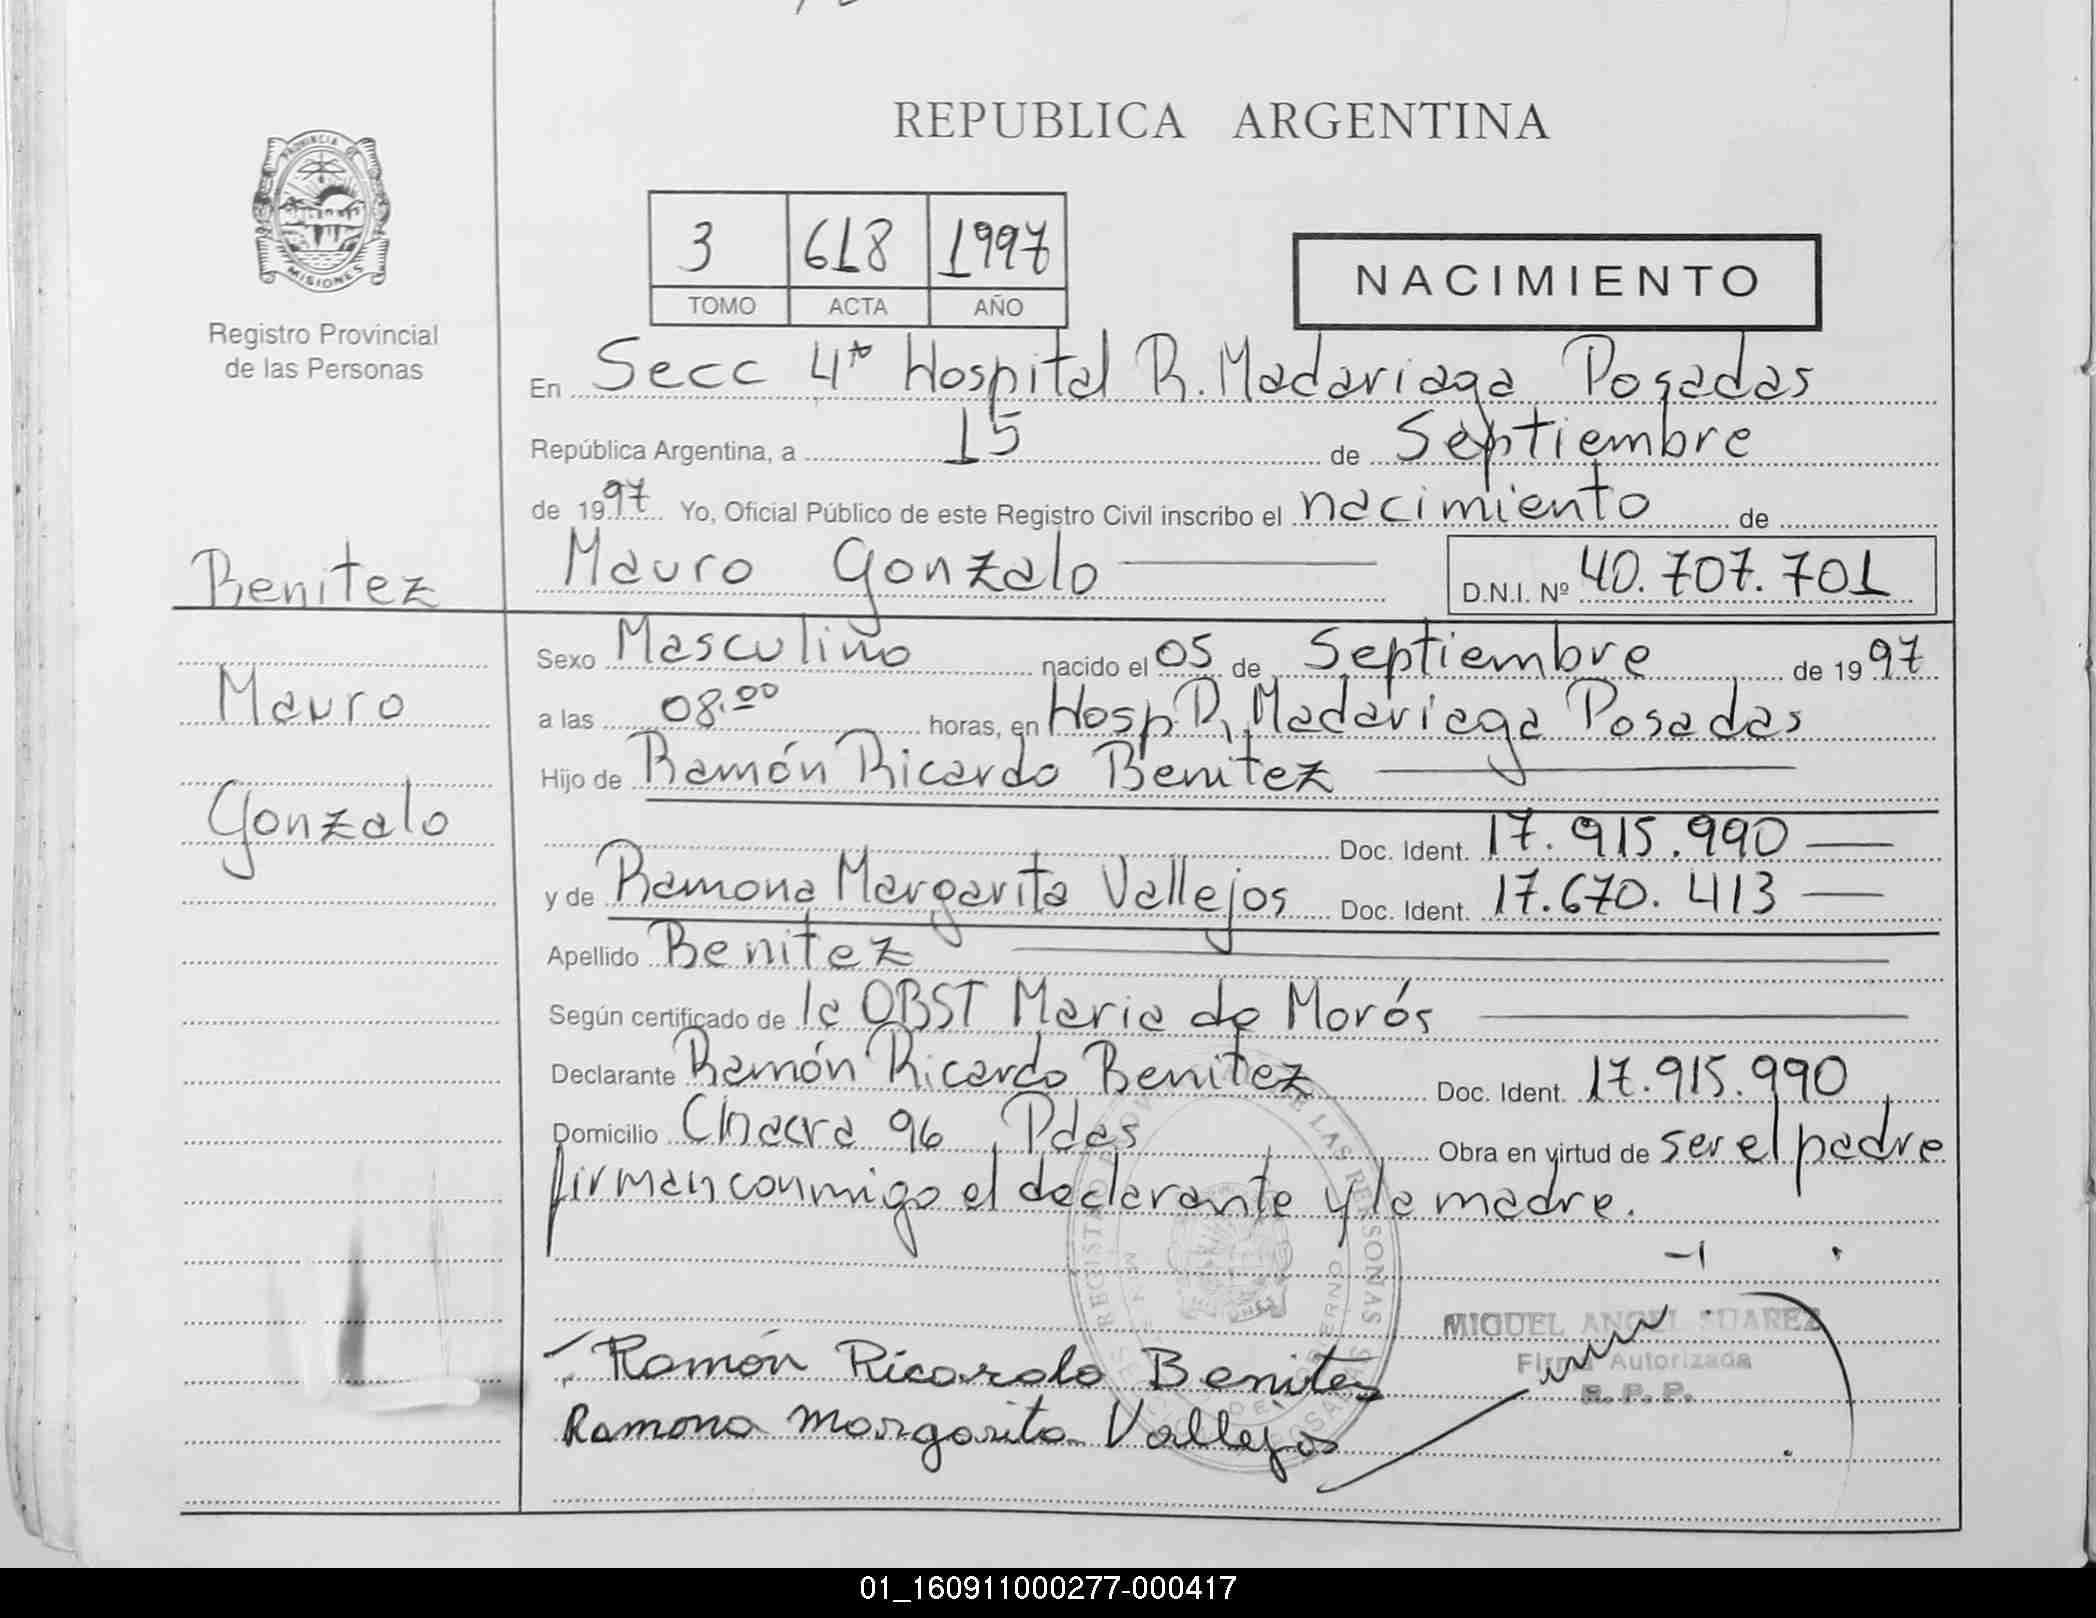 REPUBLICA ARGENTINA
PROVINCIA DE
MISIONES
Registro Provincial
de las Personas
3 618 1997
TOMO ACTA AÑO
NACIMIENTO
En Secc 4ta Hospital R. Madariaga Posadas
República Argentina, a 15 de Septiembre
de 1997 Yo, Oficial Público de este Registro Civil inscribo el nacimiento de
Mauro Gonzalo D.N.I. Nº 40.707.701
Benitez
Mauro
Gonzalo
Sexo Masculino nacido el 05 de Septiembre de 1997
a las 08.00 horas, en Hosp. R. Madariaga Posadas
Hijo de Ramón Ricardo Benitez
Doc. Ident. 17.915.990
y de Ramona Margarita Vallejos Doc. Ident. 17.670.413
Apellido Benitez
Según certificado de la OBST Maria de Morós
Declarante Ramón Ricardo Benitez Doc. Ident. 17.915.990
Domicilio Chacra 96 Pdas Obra en virtud de ser el padre
firman conmigo el declarante y la madre.
MIGUEL ANGEL SUAREZ
Firma Autorizada
R.P.P.
Ramón Ricardo Benites
Ramona Margarita Vallejos
01_160911000277-000417